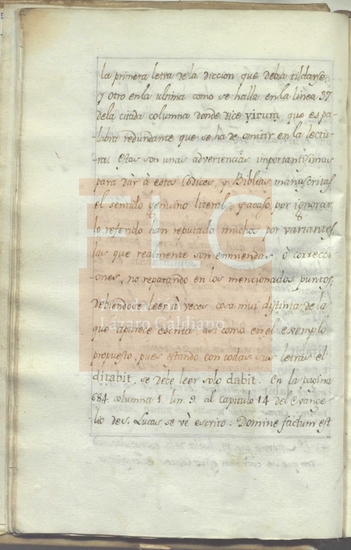 la primera letra de la diccion que debia tildarse,
y otro en la ultima como se halla en la linea 37
de la citada columna donde dice vivum, que es pa-
labra redundante que se ha de omitir en la lectu-
ra. Estas son unas advertencias importantisimas
para dàr à estos Codices, y Biblias manuscritas
el sentido genuino literal, y acaso por ignorar
lo referido han reputado muchos por variantes
las que realmente son enmiendas ò correcci-
ones, no reparando en los mencionados puntos,
debiendose leer à veces cosa mui distinta de la
que aparece escrita: asi como en el exemplo
propuesto, pues estando con todas sus letras el
ditabit, se debe leer solo dabit. En la pagina
684. columna 1. lin. 9. al capitulo 14 del Evange-
lio de S. Lucas se vè escrito: Domine factum est
Lázaro Galdiano